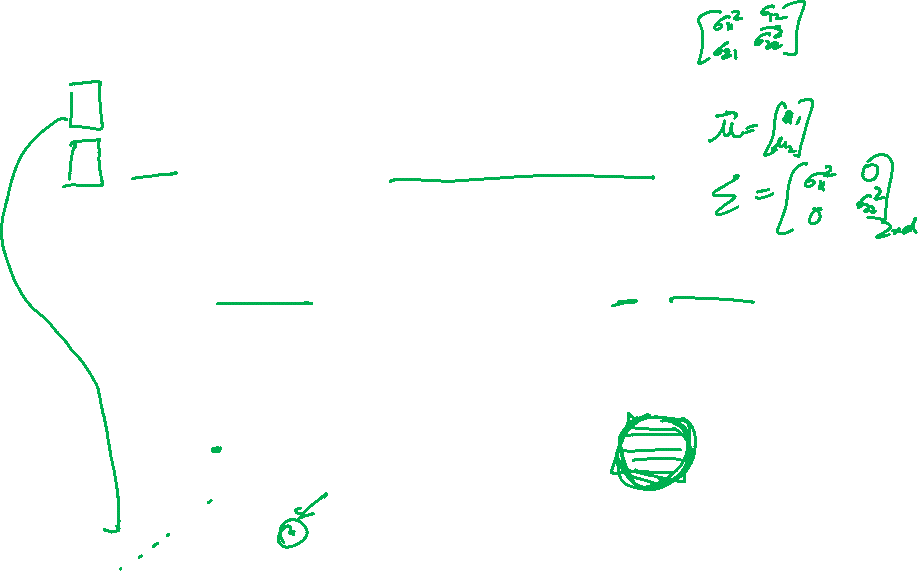 [σx² σ12
σ21 σ22²]
μ = [μ1
μ2]
Σ = [σx² 0
0 σ22²]
2nd